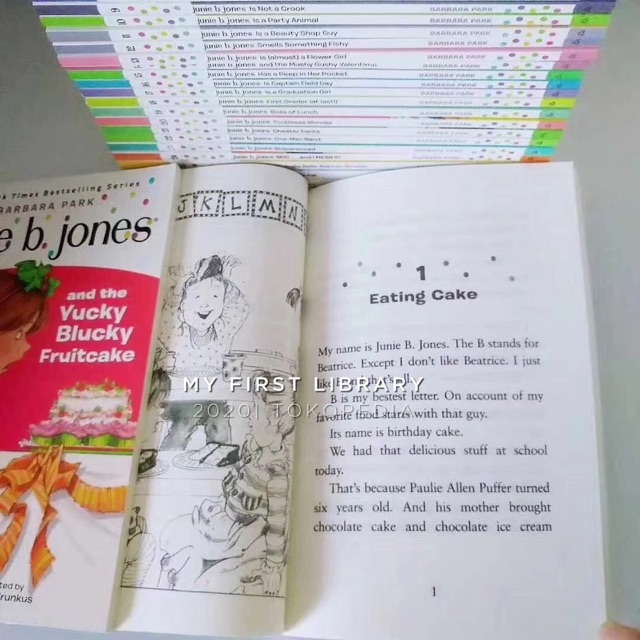 9 junie b. jones Is Not a Crook BARBARA PARK
10 junie b. jones Is a Party Animal BARBARA PARK
11 junie b. jones Is a Beauty Shop Guy BARBARA PARK
12 junie b. jones Smells Something Fishy BARBARA PARK
junie b. jones Is (almost) a Flower Girl BARBARA PARK
junie b. jones and the Mushy Gushy Valentime BARBARA PARK
junie b. jones Has a Peep in Her Pocket BARBARA PARK
junie b. jones Is Captain Field Day BARBARA PARK
junie b. jones Is a Graduation Girl BARBARA PARK
junie b. jones First Grader (at last!) BARBARA PARK
junie b. jones Boss of Lunch BARBARA PARK
junie b. jones Toothless Wonder BARBARA PARK
junie b. jones Cheater Pants BARBARA PARK
junie b. jones One-Man Band BARBARA PARK
junie b. jones Shipwrecked BARBARA PARK
junie b. jones
k Times Bestselling Series
BARBARA PARK
e b. jones
and the
Yucky
Blucky
Fruitcake
ted by
runkus
J K L M N
1
Eating Cake
My name is Junie B. Jones. The B stands for
Beatrice. Except I don't like Beatrice. I just
B is my bestest letter. On account of my
favorite food starts with that guy.
Its name is birthday cake.
We had that delicious stuff at school
today.
That's because Paulie Allen Puffer turned
six years old. And his mother brought
chocolate cake and chocolate ice cream
1
MY FIRST LIBRARY
2020| TOKOPEDIA